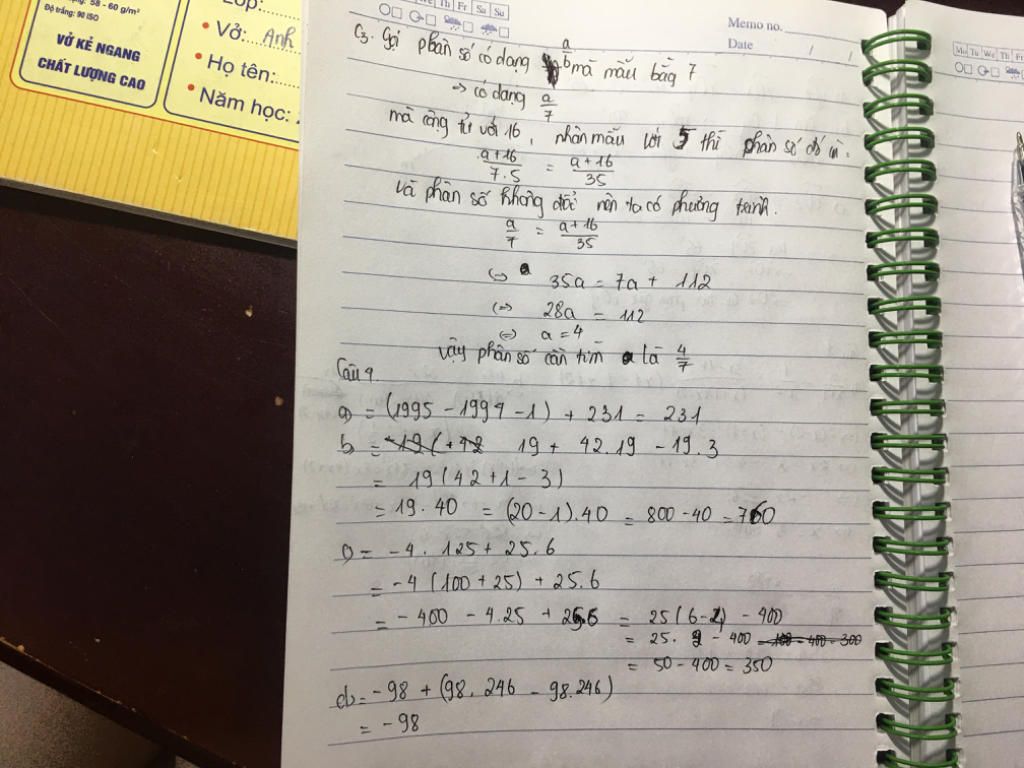 58 - 60 g/m²
Độ trắng: 90 ISO
VỞ KẺ NGANG
CHẤT LƯỢNG CAO
Lớp:
• Vở: Anh
• Họ tên:
• Năm học:
We Th Fr Sa Su
Memo no.
Date / /
Mo Tu We Th Fr
C3. Gọi phân số có dạng a/b mà mẫu bằg 7
→ có dạng a/7
mà cộng tử với 16, nhân mẫu với 5 thì phân số đó
(a+16)/(7.5) = (a+16)/35
và phân số không đổi nên ta có phương trình.
a/7 = (a+16)/35
(=) 35a = 7a + 112
(=) 28a = 112
(=) a = 4
Vậy phân số cần tìm là 4/7
Câu 9.
a) = (1995 - 1994 - 1) + 231 = 231
b = 19 + 42.19 - 19.3
= 19(42+1-3)
= 19.40 = (20-1).40 = 800-40 = 760
c) = -4.125 + 25.6
= -4(100+25) + 25.6
= -400 - 4.25 + 25.6 = 25(6-4) - 400
= 25.2 - 400
= 50 - 400 = 350
d) = -98 + (98.246 - 98.246)
= -98